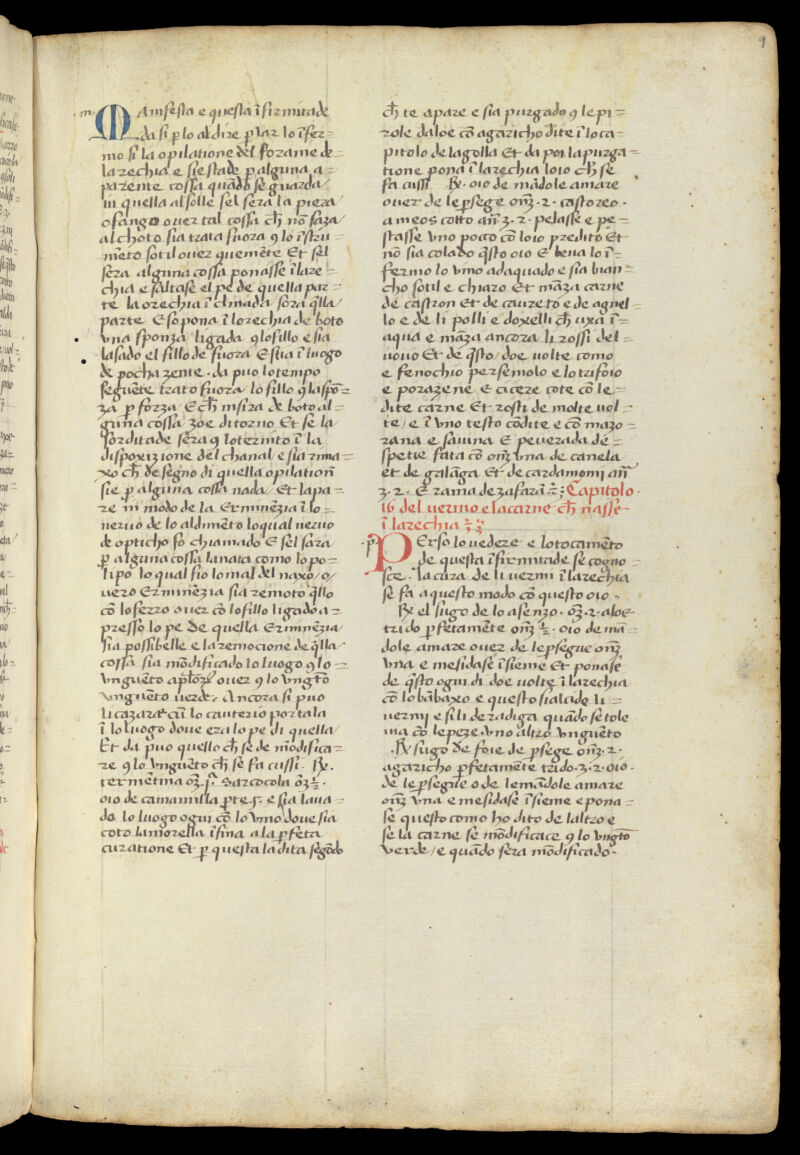 9
MAnifesta e questa ĩfirmitade
da si ꝑ lo aldire ꝑ tar lo ĩfer=
mo si la opilatione del forame de=
la rechia e sie stade ꝑ alguna a=
parente cossa quãdo se guarda
in quella al solle sel sera la piera
o fango over tal cossa ch̃ nõ faza
al choto sia trata fuora ꝯ lo ĩstru=
mẽto sotil over quemẽte Et sel
sera alguna cossa ponasse ĩ la re=
chia e saltase el pe de quella par=
te la orechia ĩ chinada sora q̃lla
parte E so pona ĩ lorechia de boto
una sponza ligada ꝯ lo fillo e sia
lasado el fillo de fuora E stia ĩ luogo
de pocha zente. da puo lo tempo
seguẽte trato fuora lo fillo ꝯ la spõ=
za ꝑ forza E ch̃ insira de boto al=
guna cossa zoe ditorno Et se la
sorditade sera ꝯ lo termito ĩ la
dispoxizione del chanal e sia rima=
xo ch̃ de segno di quella opilation
sie ꝑ alguna cossa nada Et la pa=
re in modo de la Erminẽzia ĩ lo=
nervo de lo aldimẽto lo qual nervo
de opticho so chiamado E sel sara
ꝑ alguna cossa la nata como lo po=
lipo lo qual sio lo mal del naxo/ o/
vero Erminẽzia sia remoto q̃llo
cõ lo ferro over cõ lo fillo ligado a=
presso lo pe de quella Erminẽzia
sia possibelle e la remocione de q̃lla
cossa sia mõdificado lo luogo ꝯ lo=
unguẽto over ꝯ lo ungẽto
unguẽto verde/ Ancora si puo
lo cauterio por tala
ĩ lo luogo dove era lo pe di quella
Et da puo quello ch̃ se de mõdifica=
re ꝯ lo unguẽto ch̃ se fa cussi. ℞.
termẽtina Sarcocola
oio de camamilla ꝑte e sia lava=
do lo luogo ogni cõ lo vino dove sia
coto la morella ĩsina a la ꝑfeta
curatione Et ꝑ questa la dita segõdo
ch̃ te apare e sia purgado ꝯ le pi=
role daloe cõ agaricho dite ĩ lo ca=
pitolo de la golla Et da poi la purga=
tione pona ĩ la rechia loio ch̃ se
fa cussi. ℞. oio de mãdole amare
over de le ꝑsege onz̃. 2. castoreo.
ameos cotto añ ʒ. 2. pelasse e pe=
stasse uno poco cõ loio predito Et
nõ sia colado q̃sto oio E beva lo ĩ=
fermo lo vino adaquado e sia bian=
cho sotil e chiaro Et mãza carne
de castron Et de cavreto e de agnel=
lo e de li polli e doxelli ch̃ uxa ĩ=
aqua e mãza ancora li rossi del=
uovo Et de q̃sto/ doe volte como
e fenochio persemolo e lo trifoio
e porazene E cicere cote cõ le=
dite carne Et rosti de molte vol=
te/ e ĩ uno testo cõdite e cõ mazo=
rana e savina E peverada de=
spetie fata cõ onz̃ una de canela
et de galãga Et de cardamomi añ
ʒ. 2. E rama de zafarã Capitolo.
16 del vermo e la carne ch̃ nasse
ĩ la rechia
PErso lo vedere e lo tocamẽto
de questa ĩfirmitade se cogno=
sce. la cura de li vermi ĩ la rechia
se fa a questo modo cõ questo oio.
℞ el sugo de lo asenzo. oz̃. 2. aloe
trido ꝑfetamẽte onz̃ oio de mã=
dole amare over de le ꝑsegue onz̃
una e mesidase ĩsieme Et ponase
de q̃sto ogni di doe volte ĩ la rechia
cõ lo bãbaxo e questo si alcide li
vermi e si li de radiga quãdo se tole
ma cõ le peze uno altro unguẽto
. ℞ sugo de foie de ꝑsege onz̃. 2.
agaricho ꝑfetamẽte trido. ʒ. 2. oio.
de le ꝑsegue o de le mãdole amare
onz̃ una e mesidase ĩsieme e pona=
se questo como ho dito de laltro e
se la carne se mõdificace ꝯ lo ungẽto
verde/ e quãdo sera mõdificado.